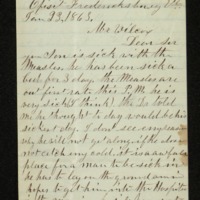 Oposit Fredericksburg Va
Jan 23, 1863,
Mr Wilcox
Dear sir
your Son is sick with the
Measles he has been sick a
bed for 3 day the Measles are
out first rate this P.M. he is
very sick I think) tho he told
me he thought to day would be his
sickest day. I dont see any reason
why he will not get along if he dos
not catch any cold. it is an awful
place for a man to be sick in
he has to lay on the ground am in
hopes to get him into the Hospital